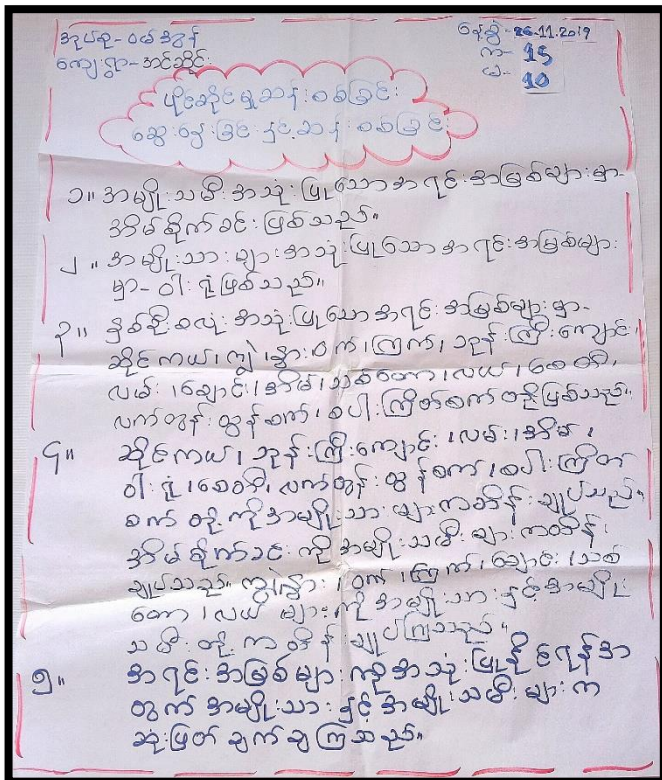 အုပ်စု-ဝမ်အွန်
ကျေးရွာ-အင်ဆိုင်း
နေ့စွဲ-26.11.2019
က- 15
မ- 10
ပိုင်ဆိုင်မှုဆန်းစစ်ခြင်း
ဆွေးနွေးခြင်းနှင့်ဆန်းစစ်ခြင်း
၁။ အမျိုးသမီးအသုံးပြုသောအရင်းအမြစ်များမှာ-
အိမ်စိုက်ခင်းဖြစ်သည်။
၂။ အမျိုးသားများအသုံးပြုသောအရင်းအမြစ်များ
မှာ-ဝါးရုံဖြစ်သည်။
၃။ နှစ်ဦးစလုံးအသုံးပြုသောအရင်းအမြစ်များမှာ-
ဆိုင်ကယ်၊ကျွဲ၊နွား၊ဝက်၊ကြက်၊ဘုန်းကြီးကျောင်း၊
လမ်း၊ချောင်း၊အိမ်၊သစ်တော၊လယ်၊စေတီ၊
လက်တွန်းထွန်စက်၊စပါးကြိတ်စက်တို့ဖြစ်သည်။
၄။ ဆိုင်ကယ်၊ဘုန်းကြီးကျောင်း၊လမ်း၊အိမ်၊
ဝါးရုံ၊စေတီ၊လက်တွန်းထွန်စက်၊စပါးကြိတ်
စက်တို့ကိုအမျိုးသားများကထိန်းချုပ်သည်။
အိမ်စိုက်ခင်းကိုအမျိုးသမီးများကထိန်း
ချုပ်သည်။ ကျွဲ၊နွား၊ဝက်၊ကြက်၊ချောင်း၊သစ်
တော၊လယ်များကိုအမျိုးသားနှင့်အမျိုး
သမီးတို့ကထိန်းချုပ်ကြသည်။
၅။ အရင်းအမြစ်များကိုအသုံးပြုနိုင်ရန်အ
တွက်အမျိုးသားနှင့်အမျိုးသမီးများက
ဆုံးဖြတ်ချက်ချကြသည်။